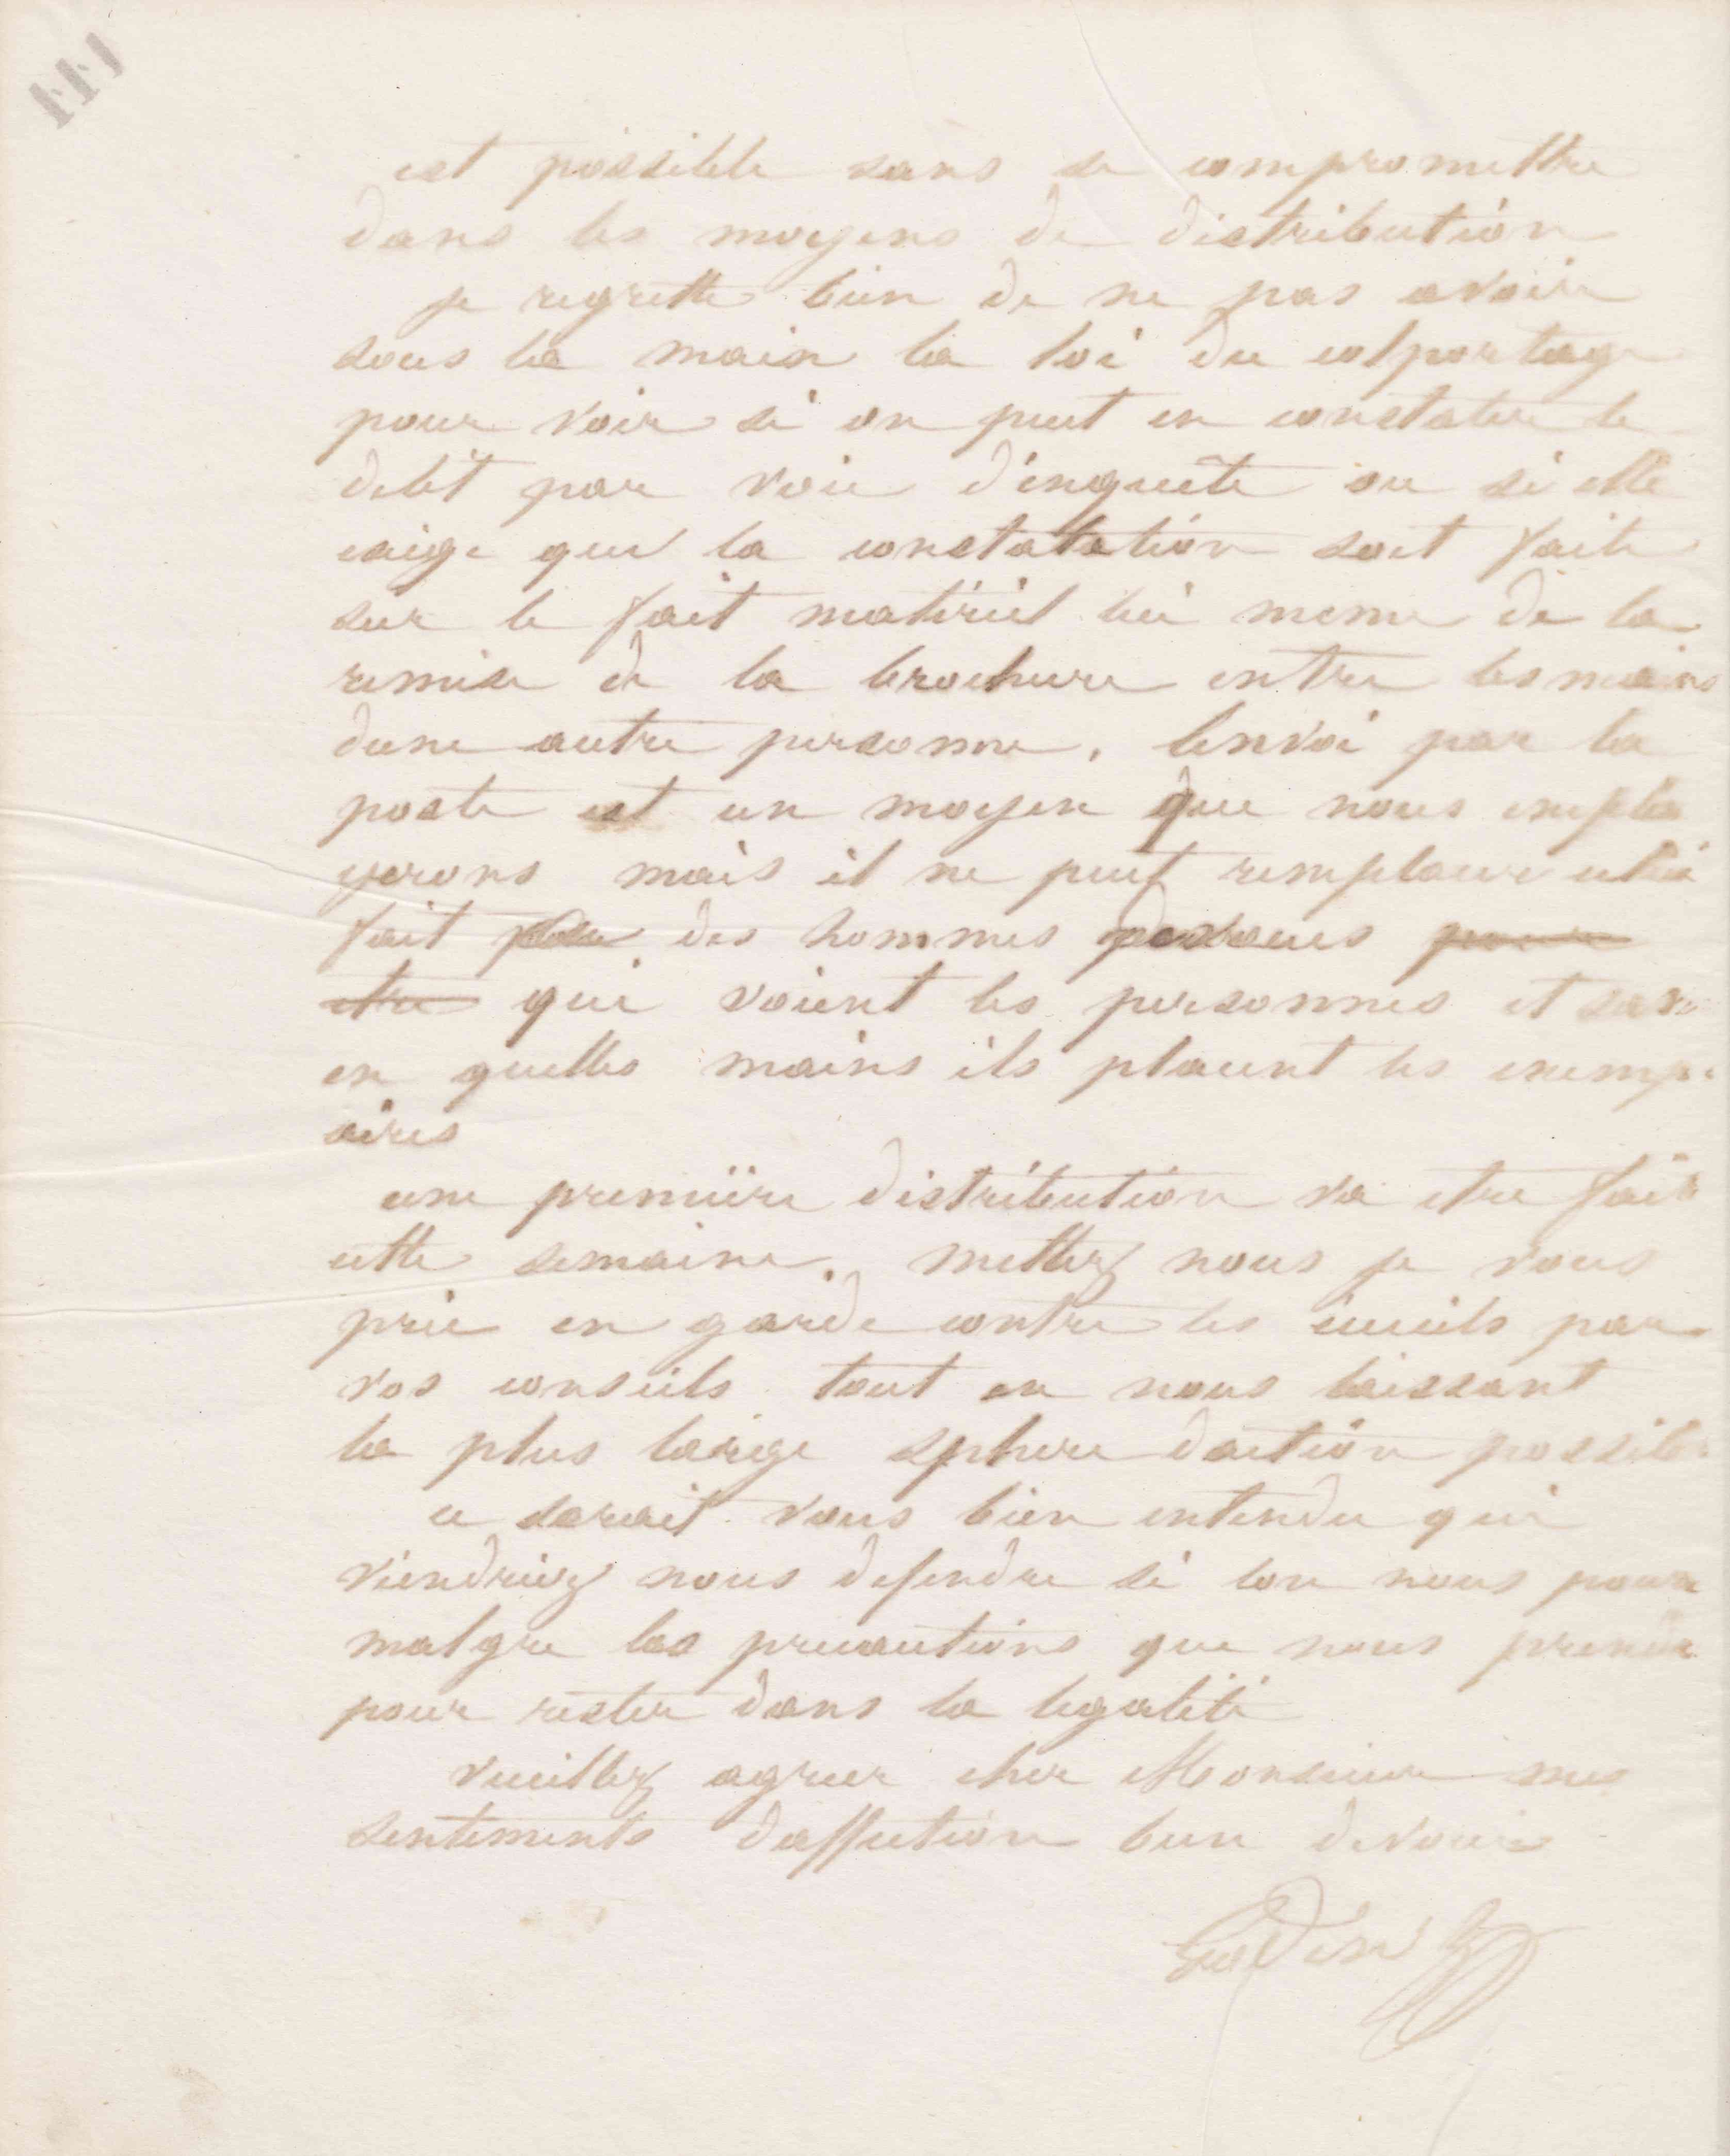 111
est possible sans se compromettre
dans les moyens de distribution
je regrette bien de ne pas avoir
sous la main la loi du colportage
pour voir si on peut en constater le
delit par voie d'enquête ou si elle
exige que la constatation soit faite
sur le fait matériel lui meme de la
remise de la brochure entre les mains
dune autre personne. lenvoi par la
poste est un moyen que nous emplo
yerons mais il ne peut remplacer
fait des hommes devoues pour
etre qui voient les personnes et
en quelles mains ils placent les exemp
aires
une première distribution va etre faite
cette semaine. mettez nous je vous
prie en garde contre les écueils par
vos conseils tout en nous laissant
la plus large sphere daction possible
ce serait vous bien entendu qui
viendriez nous defendre si lon nous
malgre les precautions que nous
pour rester dans la legalité
veuillez agreer cher Monsieur mes
sentiments daffection bien devoués
Godin